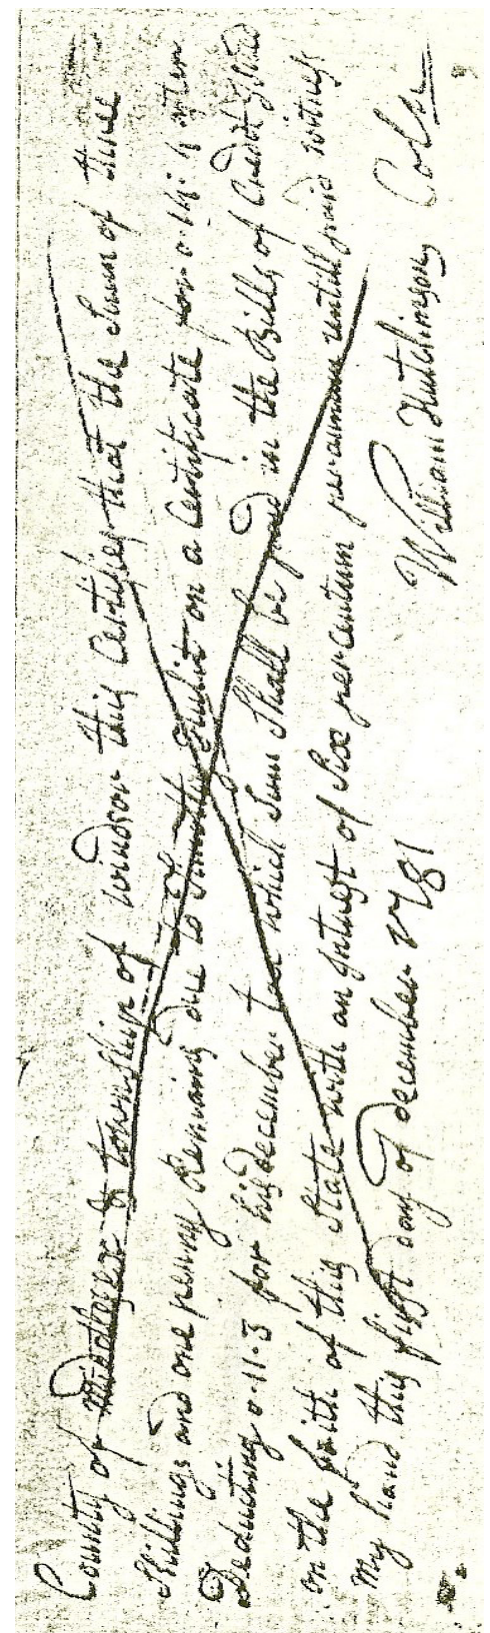 County of Middlesex & township of windsor this Certifies that the Sum of three
Shillings and one penny Remains due to on a Certificate for 0.14.4 after
Deducting 0.11.3 for his december which Sum Shall be paid in the Bills of Credit
on the faith of this State with an Intrest of Six per centum per annum untill paid witness
My hand this first day of december 1781
William Hutchinson, Colr